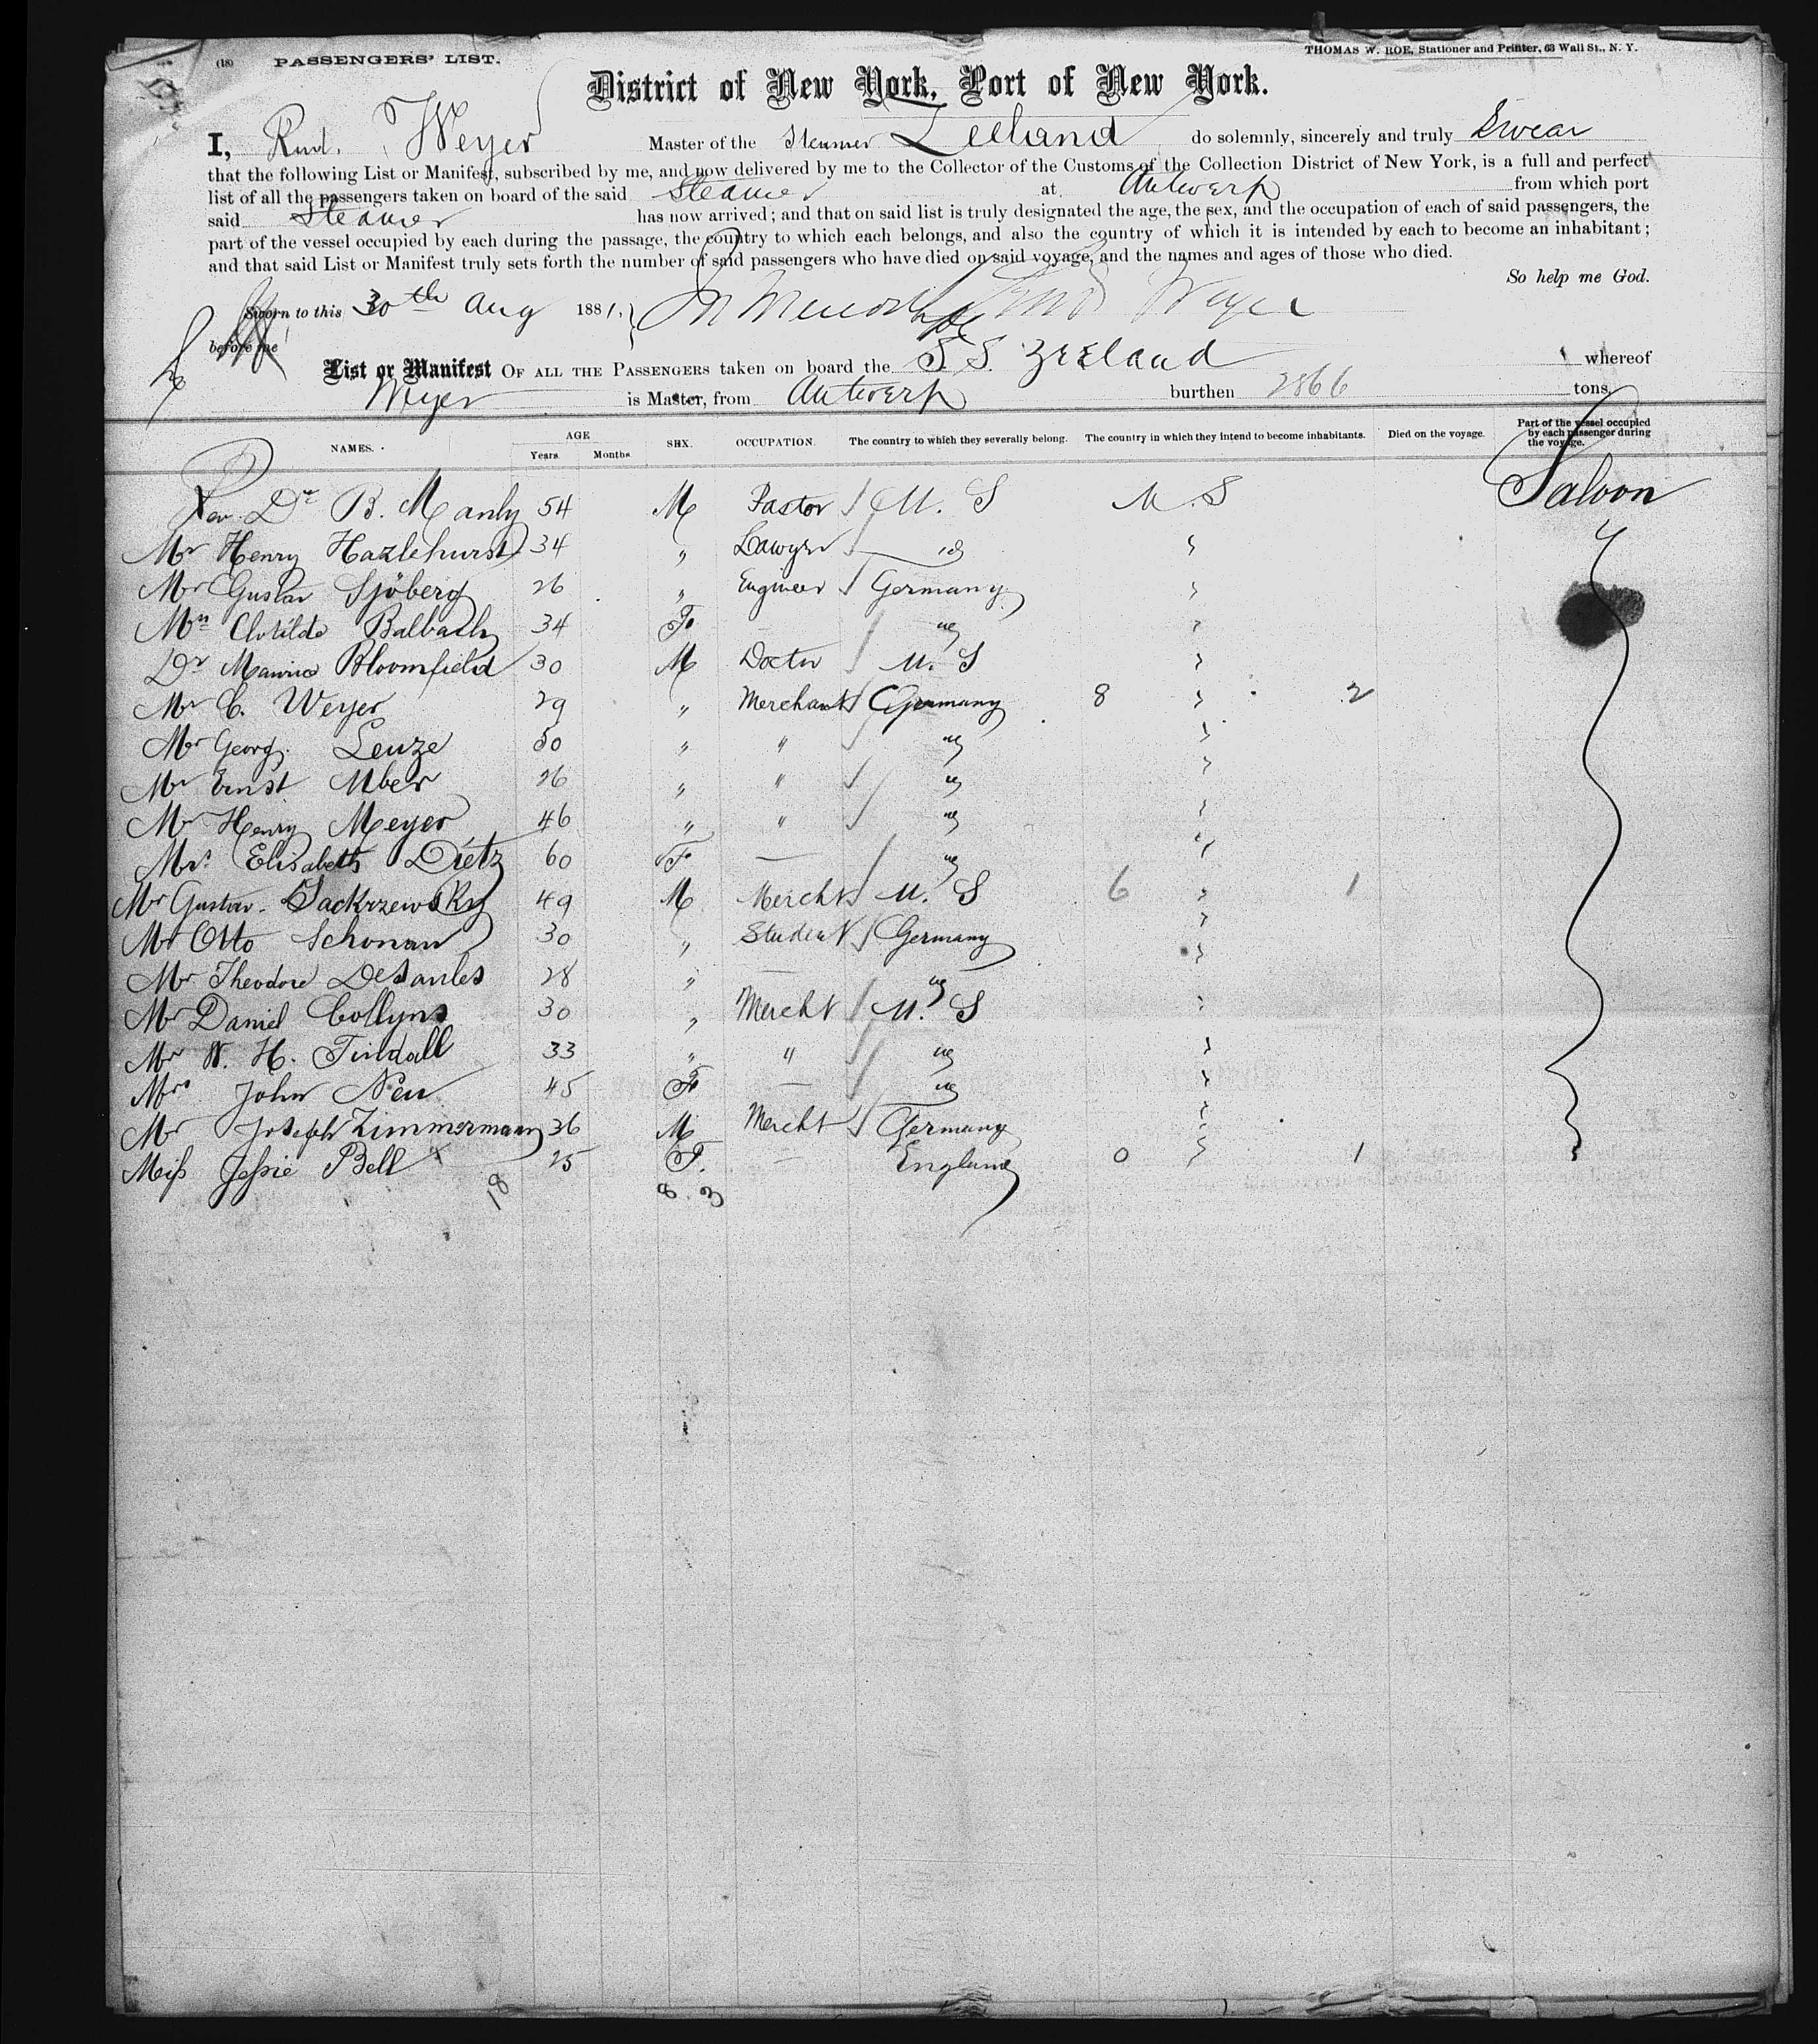 (18) PASSENGERS' LIST. THOMAS W. ROE, Stationer and Printer, 63 Wall St., N. Y.
District of New York, Port of New York.
I, Rud. Weyer Master of the Steamer Zeeland do solemnly, sincerely and truly Swear
that the following List or Manifest, subscribed by me, and now delivered by me to the Collector of the Customs of the Collection District of New York, is a full and perfect
list of all the passengers taken on board of the said Steamer at Antwerp from which port
said Steamer has now arrived; and that on said list is truly designated the age, the sex, and the occupation of each of said passengers, the
part of the vessel occupied by each during the passage, the country to which each belongs, and also the country of which it is intended by each to become an inhabitant;
and that said List or Manifest truly sets forth the number of said passengers who have died on said voyage, and the names and ages of those who died.
So help me God.
Sworn to this 30th Aug 1881, Rud Weyer
before me
List or Manifest OF ALL THE PASSENGERS taken on board the S. S. Zeeland whereof
Weyer is Master, from Antwerp burthen 2866 tons.
NAMES. AGE Years. Months. SEX. OCCUPATION. The country to which they severally belong. The country in which they intend to become inhabitants. Died on the voyage. Part of the vessel occupied by each passenger during the voyage.
Rev. Dr B. Manly 54 M Pastor U. S U. S Saloon
Mr Henry Hazlehurst 34 " Lawyer id
Mr Gustav Sjöberg 26 " Engineer Germany
Mrs Clotilde Balbach 34 F
Dr Maurice Bloomfield 30 M Doctor U. S
Mr C. Weyer 29 " Merchant Germany 8 2
Mr Georg. Leuze 50 " "
Mr Ernst Uber 26 " "
Mr Henry Meyer 46 " "
Mrs Elisabeth Dietz 60 F —
Mr Gustav Sackrzewsky 49 M Mercht U. S 6 1
Mr Otto Schonau 30 " Student Germany
Mr Theodore DeSaules 28 " —
Mr Daniel Collyns 30 " Mercht U. S
Mr W. H. Tindall 33 " "
Mrs John New 45 F —
Mr Joseph Zimmermann 36 M Mercht Germany
Miss Jessie Bell 25 F. — England 0 1
18 8 3